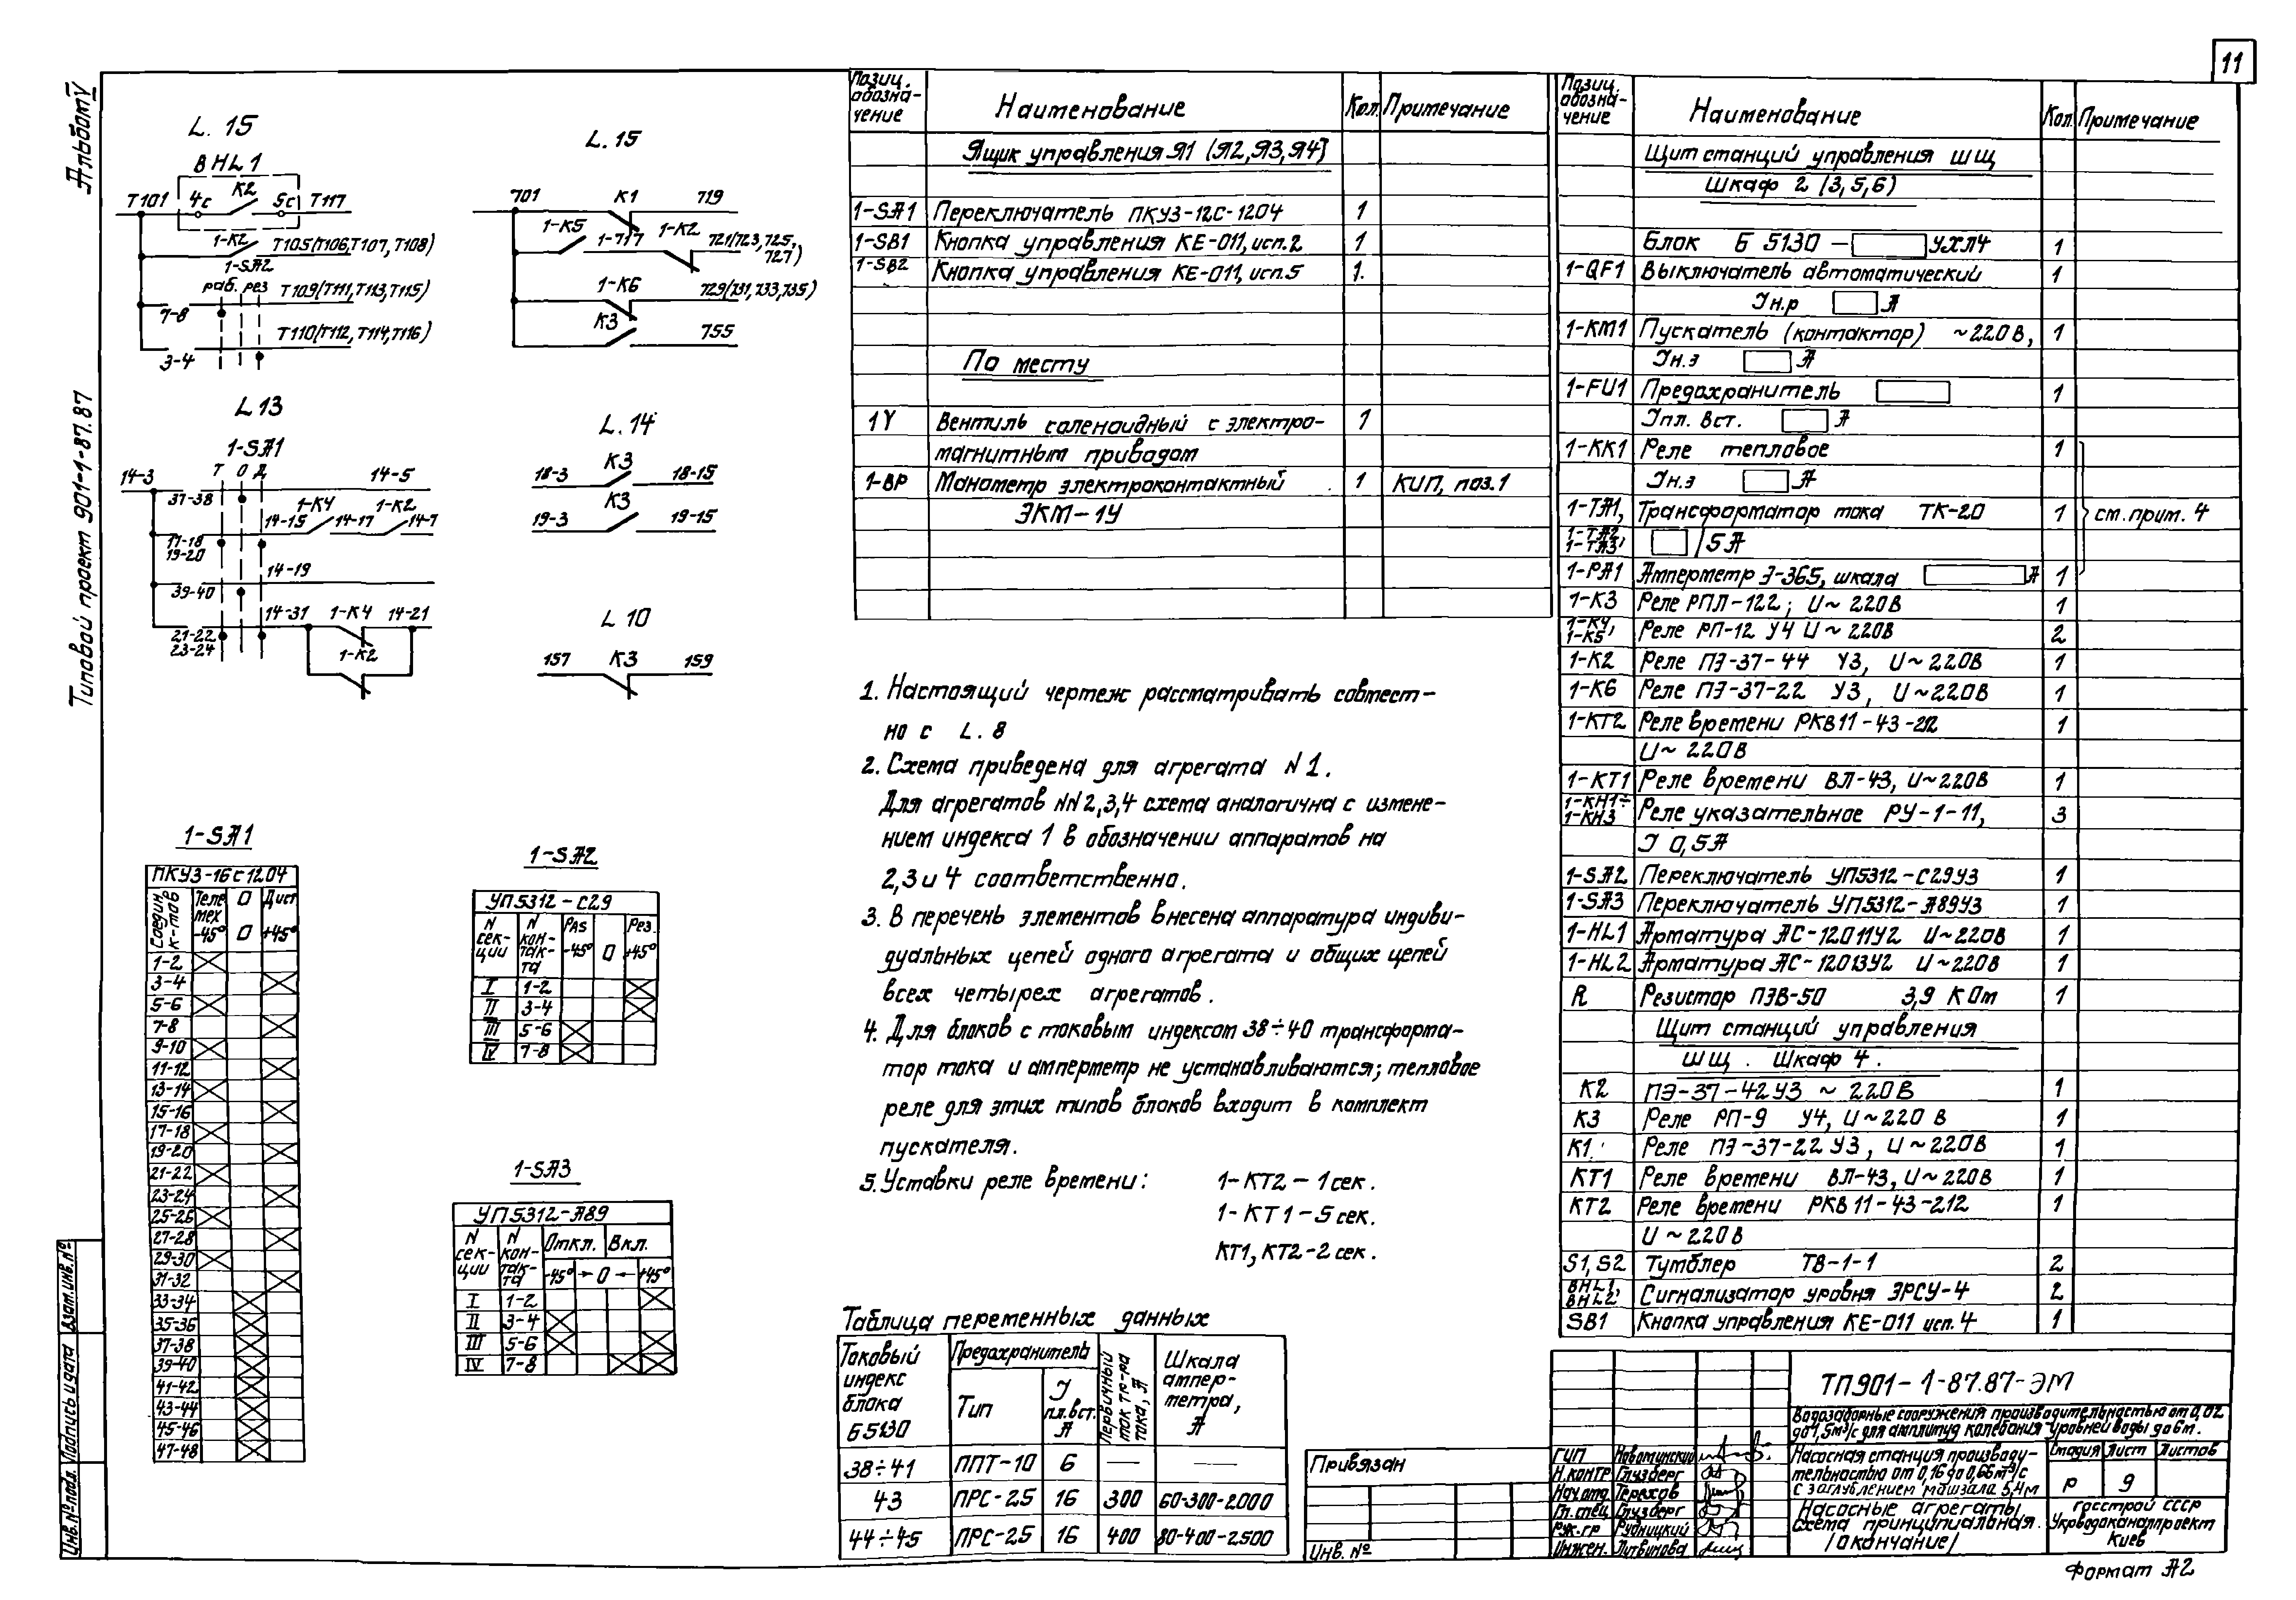 11
Альбом V
Типовой проект 901-1-87.87
L. 15
BHL1
T101 4с К2 5с T117
1-К2 T105(T106,T107,T108)
1-SA2
раб. рез T109(T111,T113,T115)
7-8
T110(T112,T114,T116)
3-4
L. 15
701 К1 719
1-К5 1-717 1-К2 721(723,725,
727)
1-К6 729(731,733,735)
К3 755
L 13
1-SA1
Т О Д
14-3 37-38 14-5
17-18 14-15 1-К4 14-17 1-К2 14-7
19-20
14-19
39-40
14-31 1-К4 14-21
21-22
23-24 1-К2
L. 14
18-3 К3 18-15
19-3 К3 19-15
L 10
157 К3 159
1-SA1
ПКУ3-16с1204
Соедин. к-тов Теле мех -45° 0 0 Дист +45°
1-2
3-4
5-6
7-8
9-10
11-12
13-14
15-16
17-18
19-20
21-22
23-24
25-26
27-28
29-30
31-32
33-34
35-36
37-38
39-40
41-42
43-44
45-46
47-48
1-SA2
УП5312-С29
N сек-ции N кон-так-та Раб -45° 0 Рез. +45°
I 1-2
II 3-4
III 5-6
IV 7-8
1-SA3
УП5312-А89
N сек-ции N кон-так-та Откл. Вкл.
-45° → 0 ← +45°
I 1-2
II 3-4
III 5-6
IV 7-8
Позиц. обозна-чение Наименование Кол. Примечание
Ящик управления Я1 (Я2,Я3,Я4)
1-SA1 Переключатель ПКУ3-12С-1204 1
1-SB1 Кнопка управления КЕ-011, исп.2 1
1-SB2 Кнопка управления КЕ-011, исп.5 1.
По месту
1Y Вентиль соленоидный с электро- 1
магнитным приводом
1-ВР Манометр электроконтактный 1 КИП, поз.1
ЭКМ-1У
1. Настоящий чертеж рассматривать совмест-
но с L. 8
2. Схема приведена для агрегата N1.
Для агрегатов NN2,3,4 схема аналогична с измене-
нием индекса 1 в обозначении аппаратов на
2,3 и 4 соответственно.
3. В перечень элементов внесена аппаратура индиви-
дуальных цепей одного агрегата и общих цепей
всех четырех агрегатов.
4. Для блоков с токовым индексом 38÷40 трансформа-
тор тока и амперметр не устанавливаются; тепловое
реле для этих типов блоков входит в комплект
пускателя.
5. Уставки реле времени: 1-КТ2 - 1 сек.
1-КТ1-5 сек.
КТ1, КТ2-2 сек.
Таблица переменных данных
Токовый индекс блока Б5130 Предохранитель Тип I пл.вст. А Первичный ток тр-ра тока, А Шкала ампер-метра, А
38÷41 ППТ-10 6 — —
43 ПРС-25 16 300 60-300-2000
44÷45 ПРС-25 16 400 80-400-2500
Позиц. обозна-чение Наименование Кол. Примечание
Щит станций управления ШЩ
Шкаф 2 (3,5,6)
Блок Б 5130 - УХЛ4 1
1-QF1 Выключатель автоматический 1
Iн.р А
1-КМ1 Пускатель (контактор) ~220В, 1
Iн.э А
1-FU1 Предохранитель 1
Iпл. вст. А
1-КК1 Реле тепловое 1
Iн.э А
1-ТА1, Трансформатор тока ТК-20 1 см. прим. 4
1-ТА2, 1-ТА3 /5А
1-РА1 Амперметр Э-365, шкала А 1
1-К3 Реле РПЛ-122; U~220В 1
1-К4, 1-К5 Реле РП-12 У4 U~220В 2
1-К2 Реле ПЭ-37-44 У3, U~220В 1
1-К6 Реле ПЭ-37-22 У3, U~220В 1
1-КТ2 Реле времени РКВ11-43-212 1
U~220В
1-КТ1 Реле времени ВЛ-43, U~220В 1
1-КН1÷ 1-КН3 Реле указательное РУ-1-11, 3
I 0,5А
1-SA2 Переключатель УП5312-С29У3 1
1-SA3 Переключатель УП5312-А89У3 1
1-HL1 Арматура АС-12011У2 U~220В 1
1-HL2 Арматура АС-12013У2 U~220В 1
R Резистор ПЭВ-50 3,9 КОм 1
Щит станций управления
ШЩ. Шкаф 4.
К2 ПЭ-37-42У3 ~ 220В 1
К3 Реле РП-9 У4, U~220 В 1
К1 Реле ПЭ-37-22 У3, U~220В 1
КТ1 Реле времени ВЛ-43, U~220В 1
КТ2 Реле времени РКВ11-43-212 1
U~220В
S1, S2 Тумблер ТВ-1-1 2
BHL1, BHL2 Сигнализатор уровня ЭРСУ-4 2
SB1 Кнопка управления КЕ-011 исп. 4 1
ТП901-1-87.87-ЭМ
Водозаборные сооружения производительностью от 0,02
до 1,5м³/с для амплитуд колебания уровней воды до 6м.
Насосная станция производи-
тельностью от 0,16 до 0,66м³/с
с заглублением машзала 5,4м
Стадия Лист Листов
Р 9
Насосные агрегаты
Схема принципиальная.
/окончание/
Госстрой СССР
Укрводоканалпроект
Киев
ГИП Новоминский
Н.контр Глузберг
Нач.отд Терехов
Гл.спец Глузберг
Рук.гр Рудницкий
Инжен. Литвинова
Привязан
Инв. №
Взам.инв.№
Подпись и дата
Инв.№ подл.
Формат А2